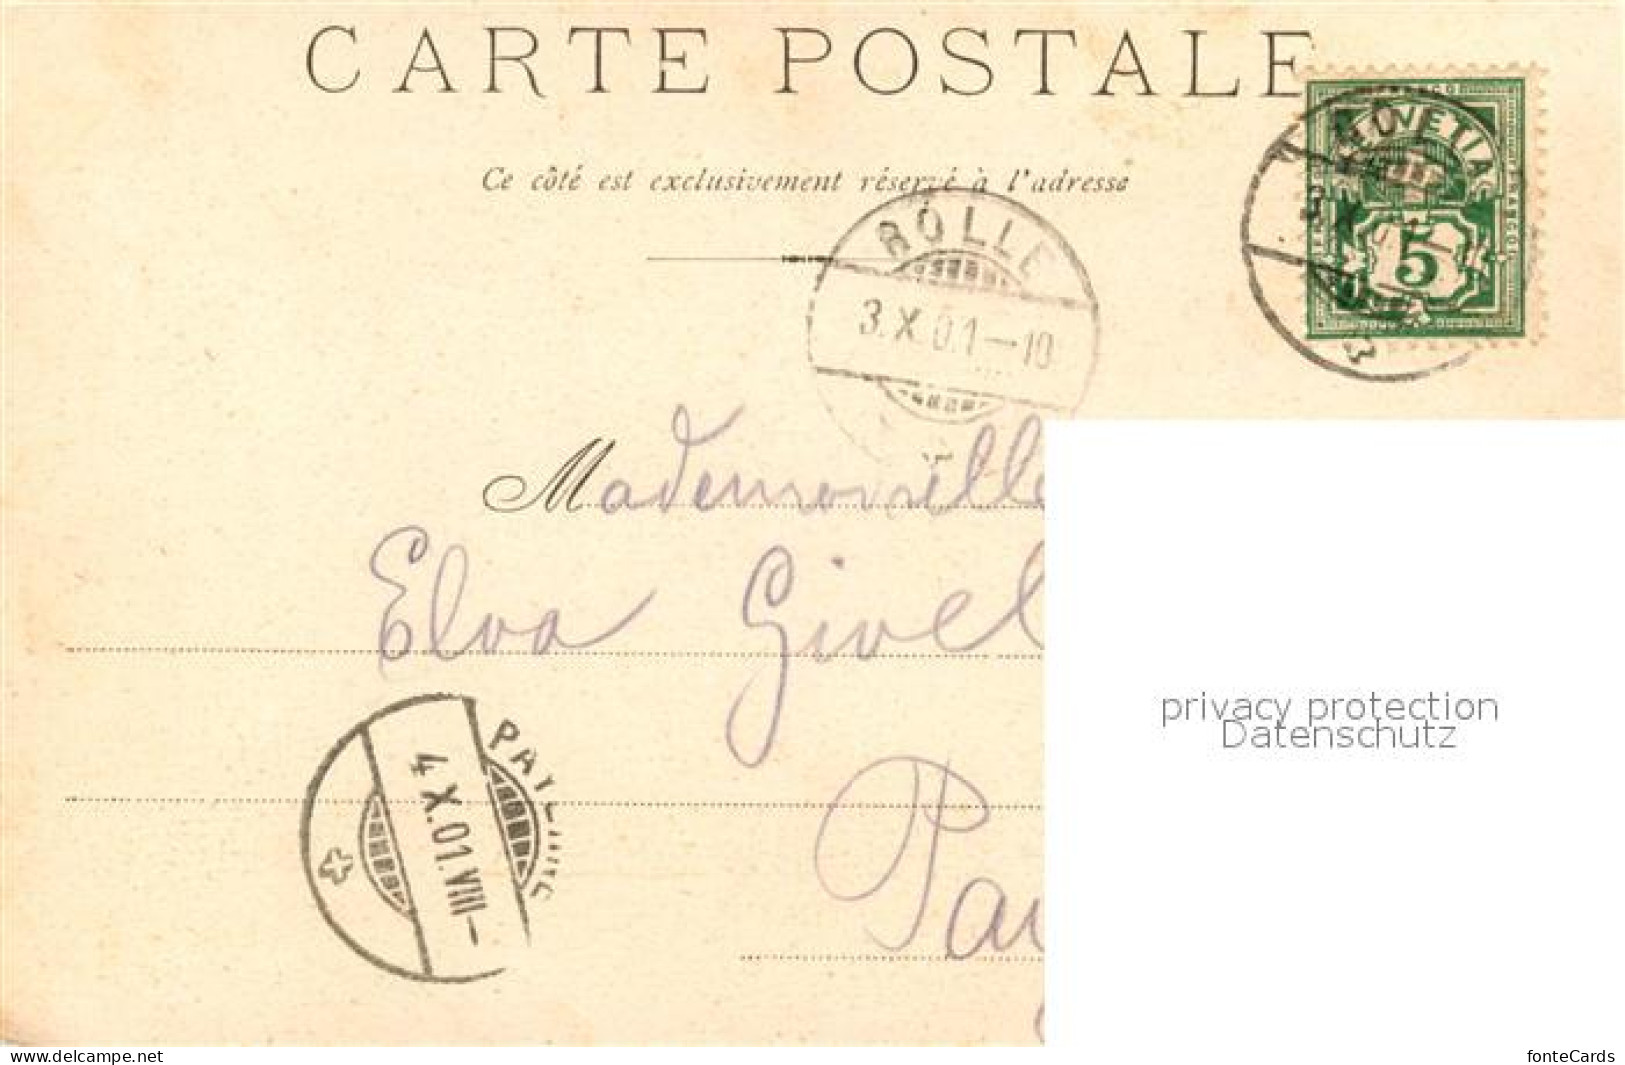 CARTE POSTALE
Ce côté est exclusivement réservé à l'adresse
HELVETIA
5
ROLLE
3.X.01-10
Mademoiselle
Elva Givel
PAYERNE
4.X.01.VIII-
Pay
privacy protection
Datenschutz
www.delcampe.net
fonteCards